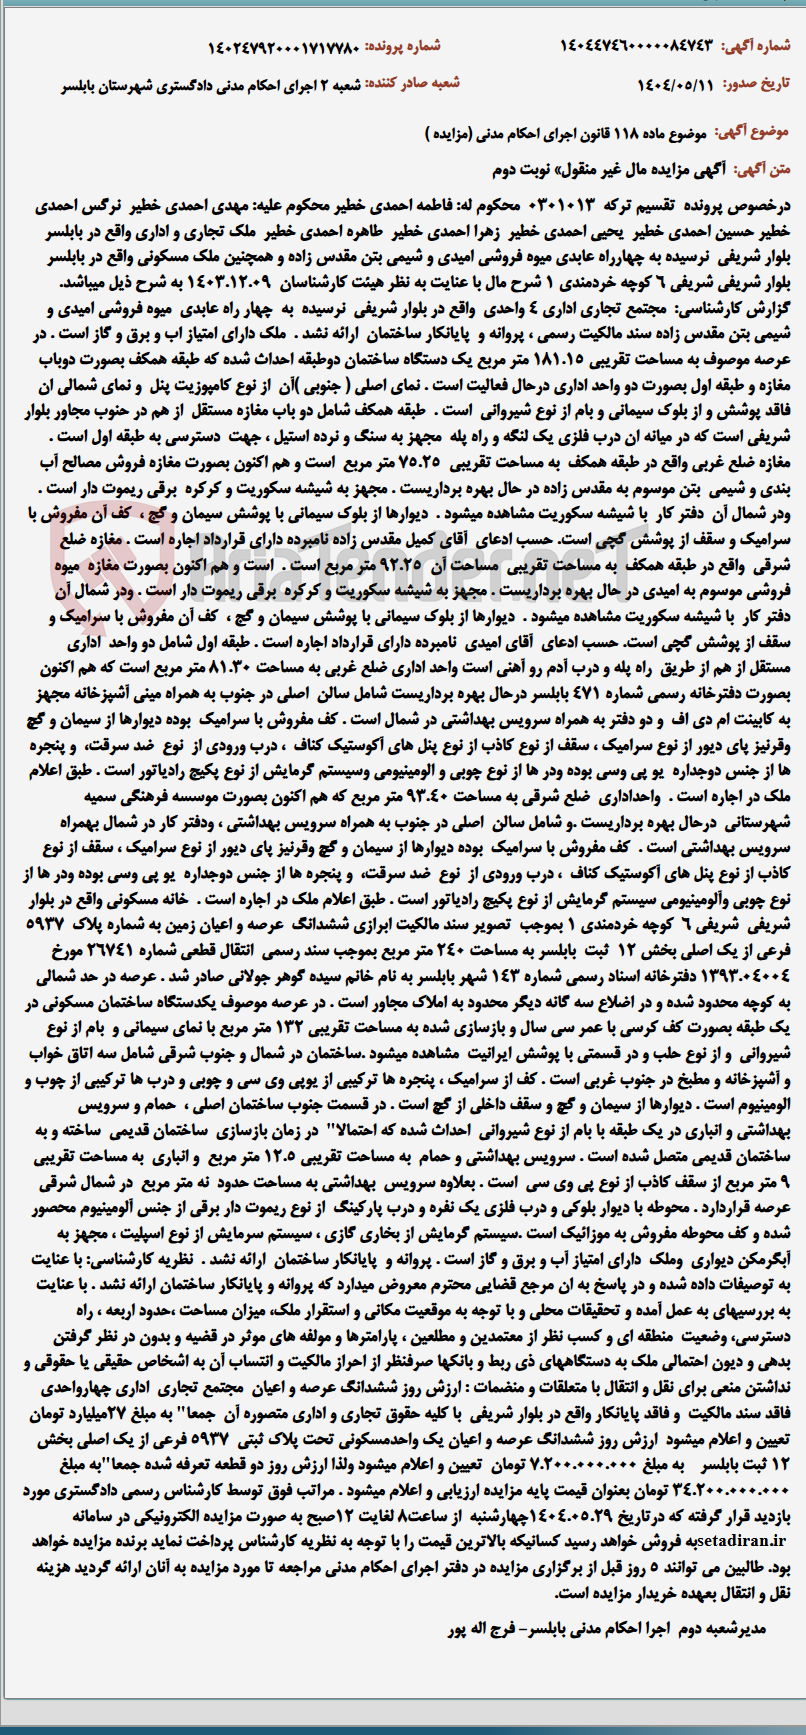 شماره آگهی: ۱۴۰۴۴۷۴۶۰۰۰۰۰۸۴۷۴۳ شماره پرونده: ۱۴۰۲۴۷۹۲۰۰۰۱۷۱۷۷۸۰
تاریخ صدور: ۱۴۰۴/۰۵/۱۱ شعبه صادر کننده: شعبه ۲ اجرای احکام مدنی دادگستری شهرستان بابلسر
موضوع آگهی: موضوع ماده ۱۱۸ قانون اجرای احکام مدنی (مزایده )
متن آگهی: آگهی مزایده مال غیر منقول» نوبت دوم
درخصوص پرونده تقسیم ترکه ۰۳۰۱۰۱۳ محکوم له: فاطمه احمدی خطیر محکوم علیه: مهدی احمدی خطیر نرگس احمدی
خطیر حسین احمدی خطیر یحیی احمدی خطیر زهرا احمدی خطیر طاهره احمدی خطیر ملک تجاری و اداری واقع در بابلسر
بلوار شریفی نرسیده به چهارراه عابدی میوه فروشی امیدی و شیمی بتن مقدس زاده و همچنین ملک مسکونی واقع در بابلسر
بلوار شریفی شریفی ۶ کوچه خردمندی ۱ شرح مال با عنایت به نظر هیئت کارشناسان ۱۴۰۳.۱۲.۰۹ به شرح ذیل میباشد.
گزارش کارشناسی: مجتمع تجاری اداری ۴ واحدی واقع در بلوار شریفی نرسیده به چهار راه عابدی میوه فروشی امیدی و
شیمی بتن مقدس زاده سند مالکیت رسمی ، پروانه و پایانکار ساختمان ارائه نشد . ملک دارای امتیاز اب و برق و گاز است . در
عرصه موصوف به مساحت تقریبی ۱۸۱.۱۵ متر مربع یک دستگاه ساختمان دوطبقه احداث شده که طبقه همکف بصورت دوباب
مغازه و طبقه اول بصورت دو واحد اداری درحال فعالیت است . نمای اصلی ( جنوبی )آن از نوع کامپوزیت پنل و نمای شمالی ان
فاقد پوشش و از بلوک سیمانی و بام از نوع شیروانی است . طبقه همکف شامل دو باب مغازه مستقل از هم در حنوب مجاور بلوار
شریفی است که در میانه ان درب فلزی یک لنگه و راه پله مجهز به سنگ و نرده استیل ، جهت دسترسی به طبقه اول است .
مغازه ضلع غربی واقع در طبقه همکف به مساحت تقریبی ۷۵.۲۵ متر مربع است و هم اکنون بصورت مغازه فروش مصالح آب
بندی و شیمی بتن موسوم به مقدس زاده در حال بهره برداریست . مجهز به شیشه سکوریت و کرکره برقی ریموت دار است .
ودر شمال آن دفتر کار با شیشه سکوریت مشاهده میشود . دیوارها از بلوک سیمانی با پوشش سیمان و گچ ، کف آن مفروش با
سرامیک و سقف از پوشش گچی است. حسب ادعای آقای کمیل مقدس زاده نامبرده دارای قرارداد اجاره است . مغازه ضلع
شرقی واقع در طبقه همکف به مساحت تقریبی مساحت آن ۹۲.۲۵ متر مربع است . است و هم اکنون بصورت مغازه میوه
فروشی موسوم به امیدی در حال بهره برداریست . مجهز به شیشه سکوریت و کرکره برقی ریموت دار است . ودر شمال آن
دفتر کار با شیشه سکوریت مشاهده میشود . دیوارها از بلوک سیمانی با پوشش سیمان و گچ ، کف آن مفروش با سرامیک و
سقف از پوشش گچی است. حسب ادعای آقای امیدی نامبرده دارای قرارداد اجاره است . طبقه اول شامل دو واحد اداری
مستقل از هم از طریق راه پله و درب آدم رو آهنی است واحد اداری ضلع غربی به مساحت ۸۱.۳۰ متر مربع است که هم اکنون
بصورت دفترخانه رسمی شماره ۴۷۱ بابلسر درحال بهره برداریست شامل سالن اصلی در جنوب به همراه مینی آشپزخانه مجهز
به کابینت ام دی اف و دو دفتر به همراه سرویس بهداشتی در شمال است . کف مفروش با سرامیک بوده دیوارها از سیمان و گچ
وقرنیز پای دیور از نوع سرامیک ، سقف از نوع کاذب از نوع پنل های آکوستیک کناف ، درب ورودی از نوع ضد سرقت، و پنجره
ها از جنس دوجداره یو پی وسی بوده ودر ها از نوع چوبی و الومینیومی وسیستم گرمایش از نوع پکیج رادیاتور است . طبق اعلام
ملک در اجاره است . واحداداری ضلع شرقی به مساحت ۹۳.۴۰ متر مربع که هم اکنون بصورت موسسه فرهنگی سمیه
شهرستانی درحال بهره برداریست .و شامل سالن اصلی در جنوب به همراه سرویس بهداشتی ، ودفتر کار در شمال بهمراه
سرویس بهداشتی است . کف مفروش با سرامیک بوده دیوارها از سیمان و گچ وقرنیز پای دیور از نوع سرامیک ، سقف از نوع
کاذب از نوع پنل های آکوستیک کناف ، درب ورودی از نوع ضد سرقت، و پنجره ها از جنس دوجداره یو پی وسی بوده ودر ها از
نوع چوبی وآلومینیومی سیستم گرمایش از نوع پکیج رادیاتور است . طبق اعلام ملک در اجاره است . خانه مسکونی واقع در بلوار
شریفی شریفی ۶ کوچه خردمندی ۱ بموجب تصویر سند مالکیت ابرازی ششدانگ عرصه و اعیان زمین به شماره پلاک ۵۹۳۷
فرعی از یک اصلی بخش ۱۲ ثبت بابلسر به مساحت ۲۴۰ متر مربع بموجب سند رسمی انتقال قطعی شماره ۲۶۷۴۱ مورخ
۱۳۹۳.۰۴۰۰۴ دفترخانه اسناد رسمی شماره ۱۴۳ شهر بابلسر به نام خانم سیده گوهر جولانی صادر شد . عرصه در حد شمالی
به کوچه محدود شده و در اضلاع سه گانه دیگر محدود به املاک مجاور است . در عرصه موصوف یکدستگاه ساختمان مسکونی در
یک طبقه بصورت کف کرسی با عمر سی سال و بازسازی شده به مساحت تقریبی ۱۳۲ متر مربع با نمای سیمانی و بام از نوع
شیروانی و از نوع حلب و در قسمتی با پوشش ایرانیت مشاهده میشود .ساختمان در شمال و جنوب شرقی شامل سه اتاق خواب
و آشپزخانه و مطبخ در جنوب غربی است . کف از سرامیک ، پنجره ها ترکیبی از یوپی وی سی و چوبی و درب ها ترکیبی از چوب و
الومینیوم است . دیوارها از سیمان و گچ و سقف داخلی از گچ است . در قسمت جنوب ساختمان اصلی ، حمام و سرویس
بهداشتی و انباری در یک طبقه با بام از نوع شیروانی احداث شده که احتمالا" در زمان بازسازی ساختمان قدیمی ساخته و به
ساختمان قدیمی متصل شده است . سرویس بهداشتی و حمام به مساحت تقریبی ۱۲.۵ متر مربع و انباری به مساحت تقریبی
۹ متر مربع از سقف کاذب از نوع پی وی سی است . بعلاوه سرویس بهداشتی به مساحت حدود نه متر مربع در شمال شرقی
عرصه قراردارد . محوطه با دیوار بلوکی و درب فلزی یک نفره و درب پارکینگ از نوع ریموت دار برقی از جنس آلومینیوم محصور
شده و کف محوطه مفروش به موزائیک است .سیستم گرمایش از بخاری گازی ، سیستم سرمایش از نوع اسپلیت ، مجهز به
آبگرمکن دیواری وملک دارای امتیاز آب و برق و گاز است . پروانه و پایانکار ساختمان ارائه نشد . نظریه کارشناسی: با عنایت
به توصیفات داده شده و در پاسخ به ان مرجع قضایی محترم معروض میدارد که پروانه و پایانکار ساختمان ارائه نشد . با عنایت
به بررسیهای به عمل آمده و تحقیقات محلی و با توجه به موقعیت مکانی و استقرار ملک، میزان مساحت ،حدود اربعه ، راه
دسترسی، وضعیت منطقه ای و کسب نظر از معتمدین و مطلعین ، پارامترها و مولفه های موثر در قضیه و بدون در نظر گرفتن
بدهی و دیون احتمالی ملک به دستگاههای ذی ربط و بانکها صرفنظر از احراز مالکیت و انتساب آن به اشخاص حقیقی یا حقوقی و
نداشتن منعی برای نقل و انتقال با متعلقات و منضمات : ارزش روز ششدانگ عرصه و اعیان مجتمع تجاری اداری چهارواحدی
فاقد سند مالکیت و فاقد پایانکار واقع در بلوار شریفی با کلیه حقوق تجاری و اداری متصوره آن جمعا" به مبلغ ۲۷میلیارد تومان
تعیین و اعلام میشود ارزش روز ششدانگ عرصه و اعیان یک واحدمسکونی تحت پلاک ثبتی ۵۹۳۷ فرعی از یک اصلی بخش
۱۲ ثبت بابلسر به مبلغ ۷.۲۰۰.۰۰۰.۰۰۰ تومان تعیین و اعلام میشود ولذا ارزش روز دو قطعه تعرفه شده جمعا"به مبلغ
۳۴.۲۰۰.۰۰۰.۰۰۰ تومان بعنوان قیمت پایه مزایده ارزیابی و اعلام میشود . مراتب فوق توسط کارشناس رسمی دادگستری مورد
بازدید قرار گرفته که درتاریخ ۱۴۰۴.۰۵.۲۹چهارشنبه از ساعت۸ لغایت ۱۲صبح به صورت مزایده الکترونیکی در سامانه
setadiran.irبه فروش خواهد رسید کسانیکه بالاترین قیمت را با توجه به نظریه کارشناس پرداخت نماید برنده مزایده خواهد
بود. طالبین می توانند ۵ روز قبل از برگزاری مزایده در دفتر اجرای احکام مدنی مراجعه تا مورد مزایده به آنان ارائه گردید هزینه
نقل و انتقال بعهده خریدار مزایده است.
مدیرشعبه دوم اجرا احکام مدنی بابلسر– فرج اله پور
AriaTender.neT